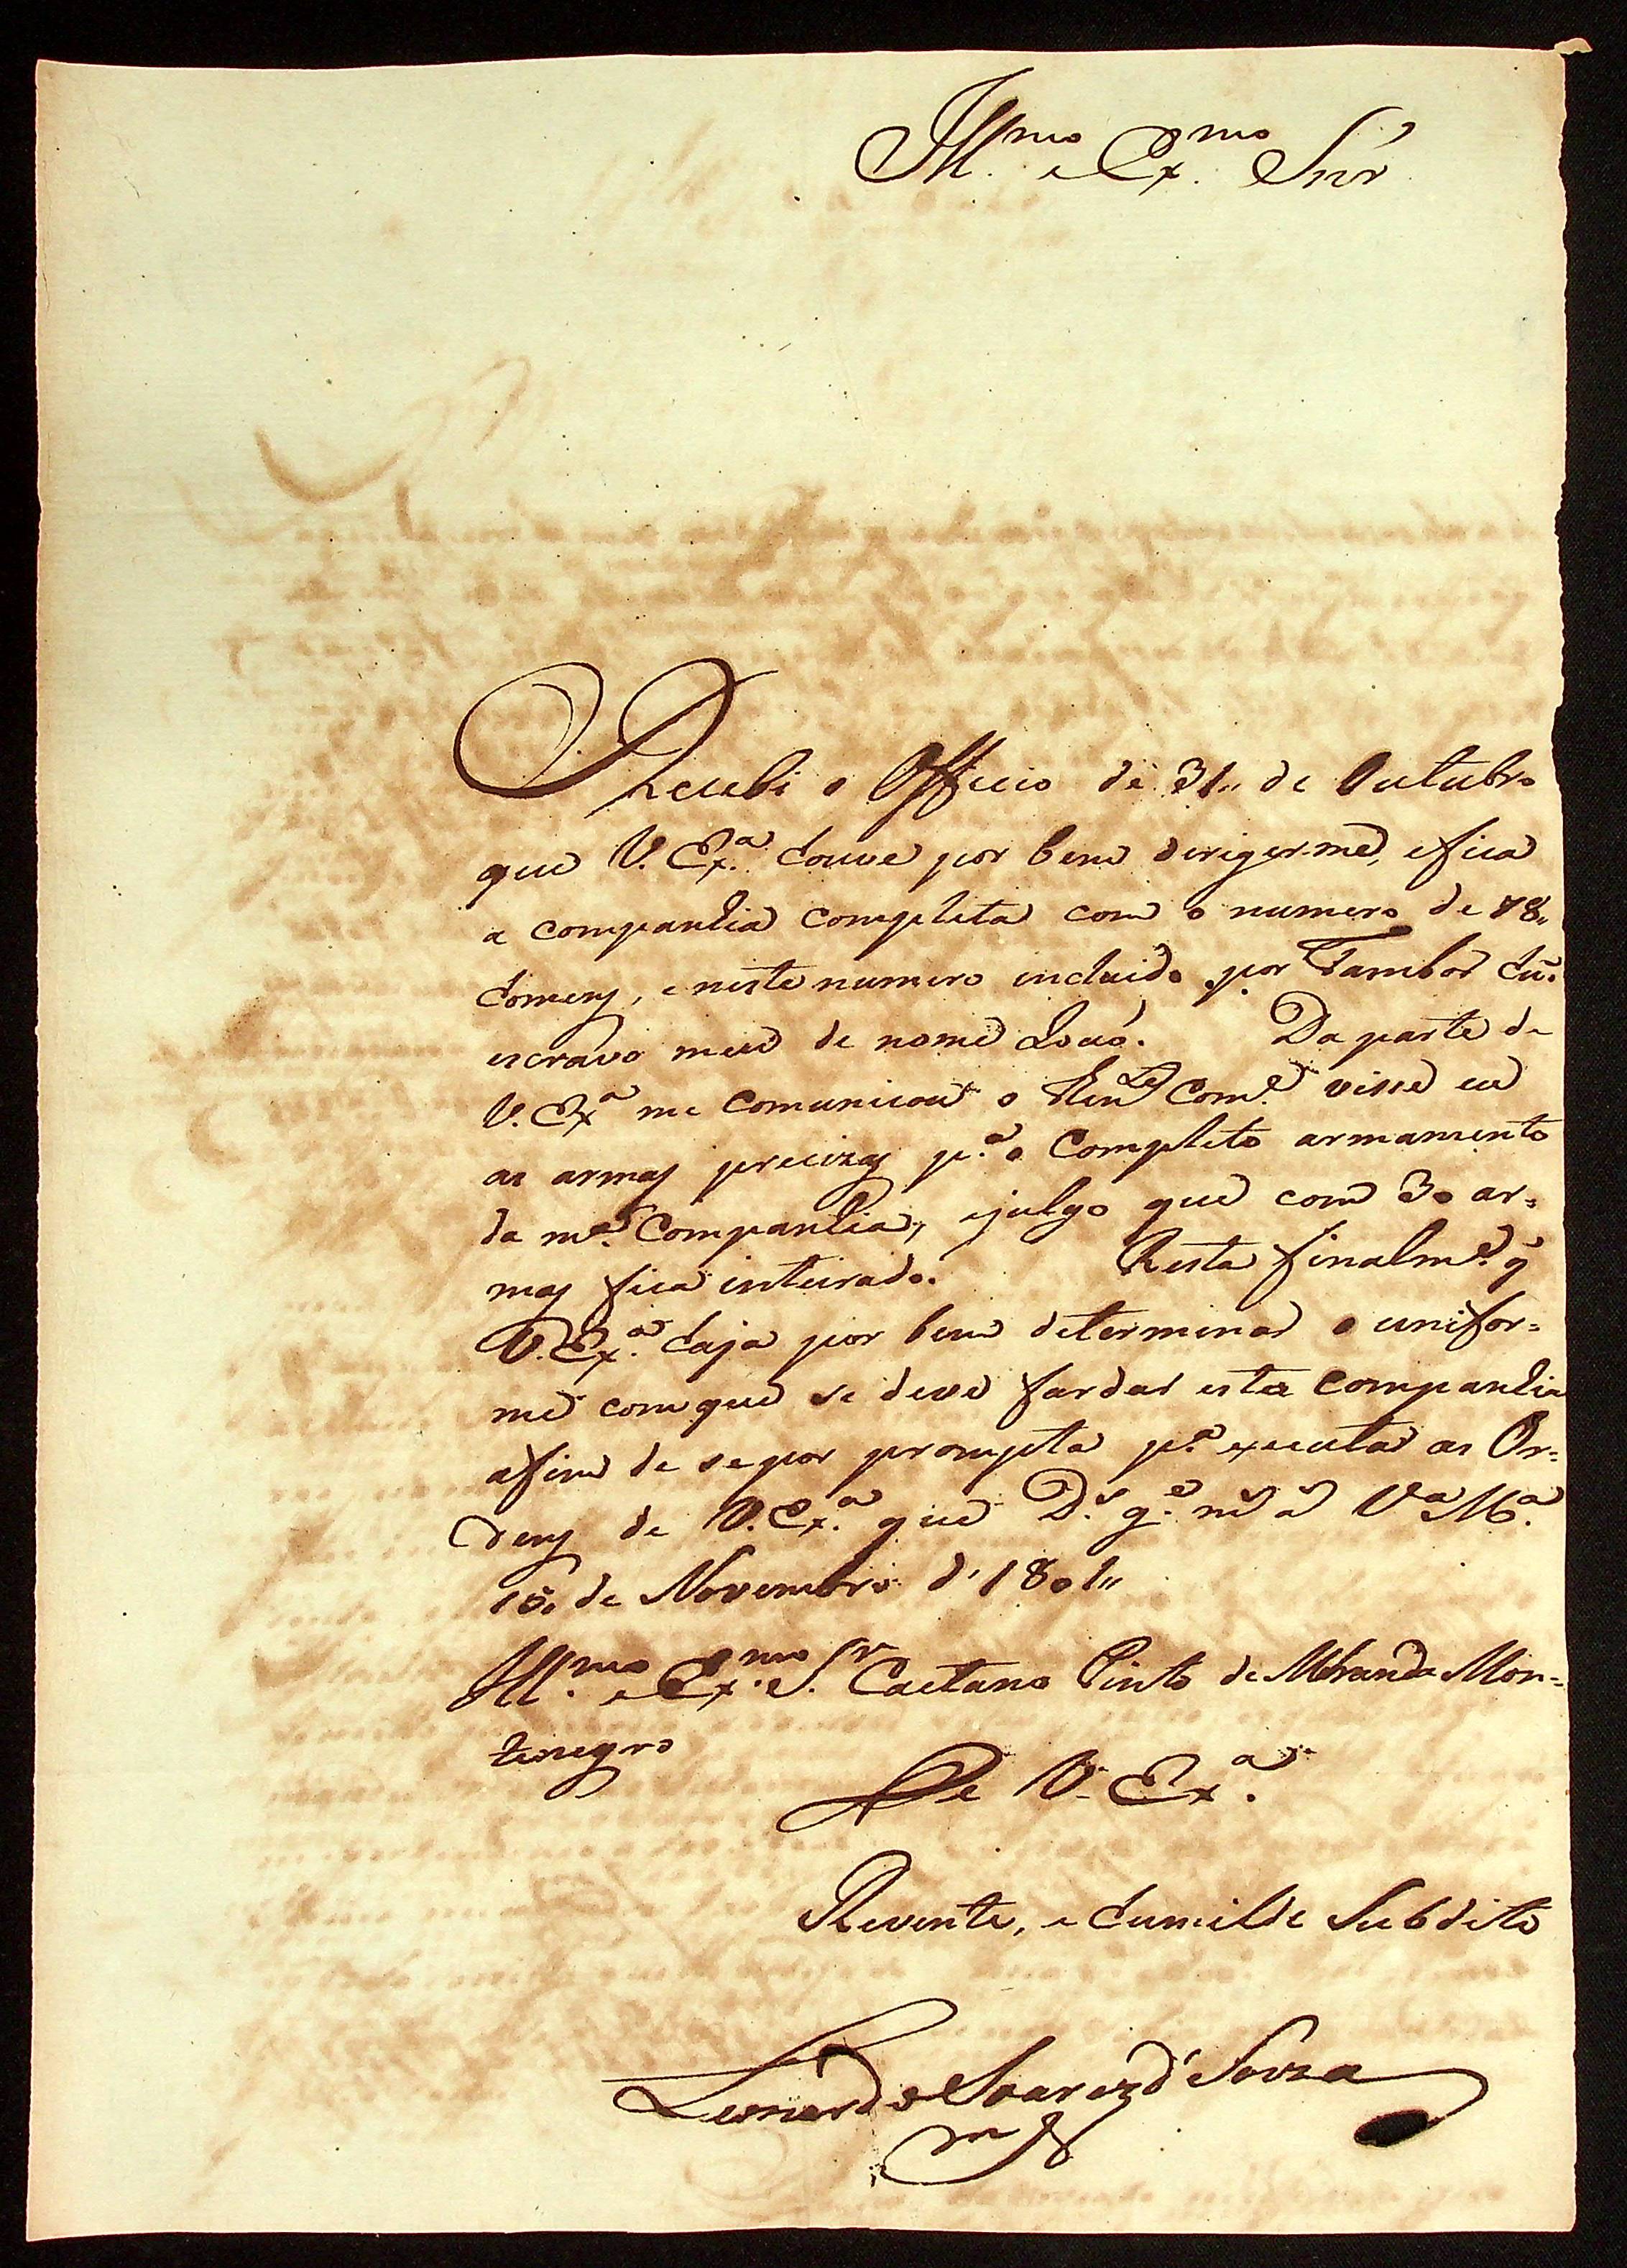 Ill.mo e Ex.mo Snr
Recebi o Officio de 31,, de Outubro
que V. Ex.a houve por bem dirigerme, efica
a companhia completa com o numero de 78,,
homens, e neste numero incluido por Tambor hũ
escravo meu de nome João. Da parte de
V. Ex.a me comunicou o Ten.e Com.e visse eu
as armas precizas p.a o Completo armamento
da m.ma Companhia, ejulgo que com 30 ar=
mas fica inteirada. Resta finalm.e q̃
V. Ex.a haja por bem determinar o unifor=
me comque se deve fardar esta companhia
afim de sepor prompta p.a executar as Or=
dens de V. Ex.a que D.s g.e m.s a.s V.a M.a
15 de Novembro d'1801,,
Ill.mo e Ex.mo S.r Caetano Pinto de Miranda Mon=
tenegro
De V. Ex.a
Reverente, e humilde Subdito
Leonardo Soares d' Souza